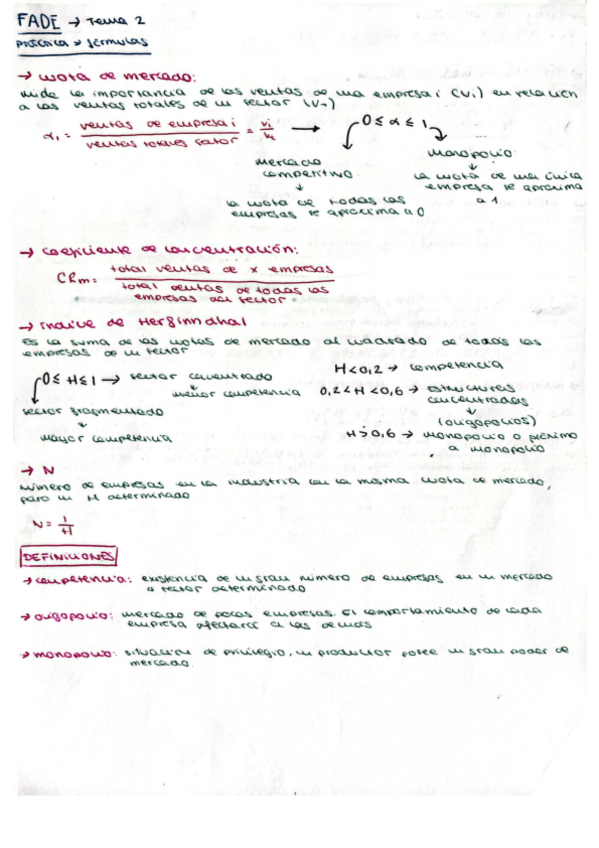 FADE → Tema 2
práctica → fórmulas
→ cuota de mercado:
mide la importancia de las ventas de una empresa i (Vi) en relación
a las ventas totales de un sector (VT)
αi = ventas de empresa i / ventas totales sector = Vi/Vt → 0 ≤ α ≤ 1
mercado competitivo
↓
la cuota de todas las empresas se aproxima a 0
monopolio:
↓
la cuota de una única empresa se aproxima a 1
→ coeficiente de concentración:
CRm = total ventas de x empresas / total ventas de todas las empresas del sector
→ Indice de Herfindhal
Es la suma de las cuotas de mercado al cuadrado de todas las
empresas de un sector
0 ≤ H ≤ 1 → sector concentrado
menor competencia
sector fragmentado
↓
mayor competencia
H < 0,2 → competencia
0,2 < H < 0,6 → estructuras concentradas
↓
(oligopolios)
H > 0,6 → monopolio o próximo a monopolio
→ N
número de empresas en la industria con la misma cuota de mercado,
para un H determinado
N = 1/H
DEFINICIONES
→ competencia: existencia de un gran número de empresas en un mercado
o sector determinado
→ oligopolio: mercado de pocas empresas. El comportamiento de cada
empresa afectará a las demás
→ monopolio: situación de privilegio, un productor posee un gran poder de
mercado.